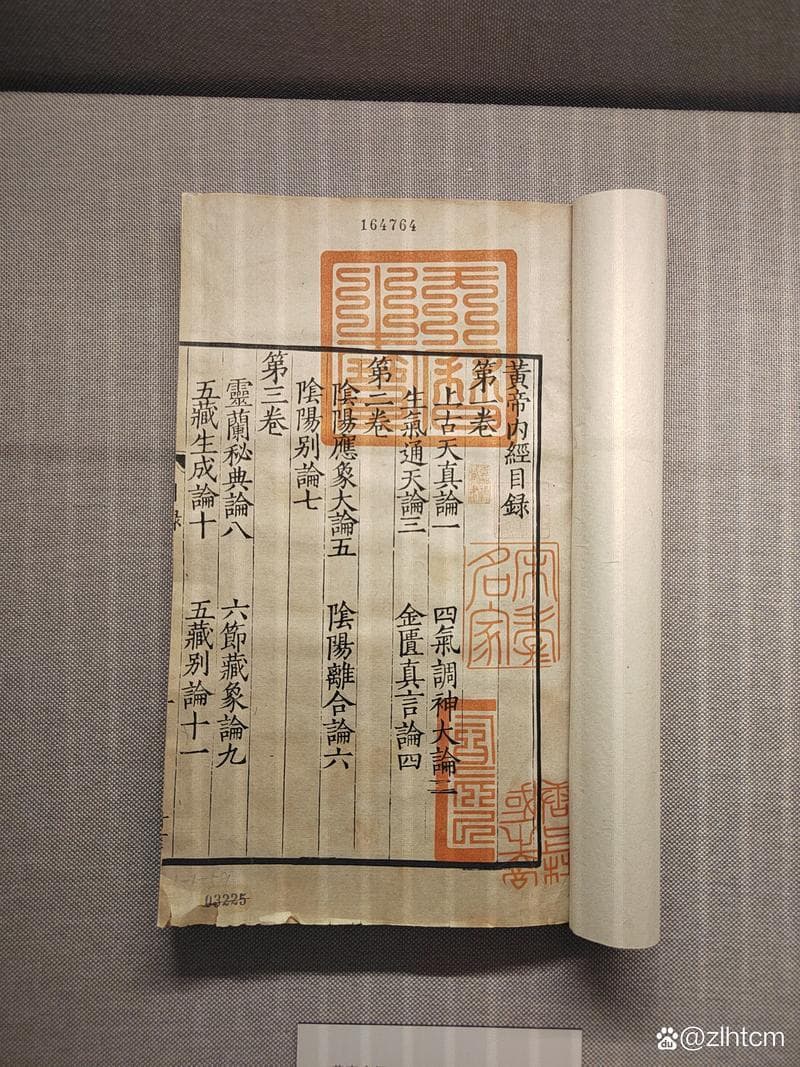 164764
黃帝內經目錄
第一卷
上古天真論一 四氣調神大論二
生氣通天論三 金匱真言論四
第二卷
陰陽應象大論五 陰陽離合論六
陰陽別論七
第三卷
靈蘭秘典論八 六節藏象論九
五藏生成論十 五藏別論十一
03225
@zlhtcm